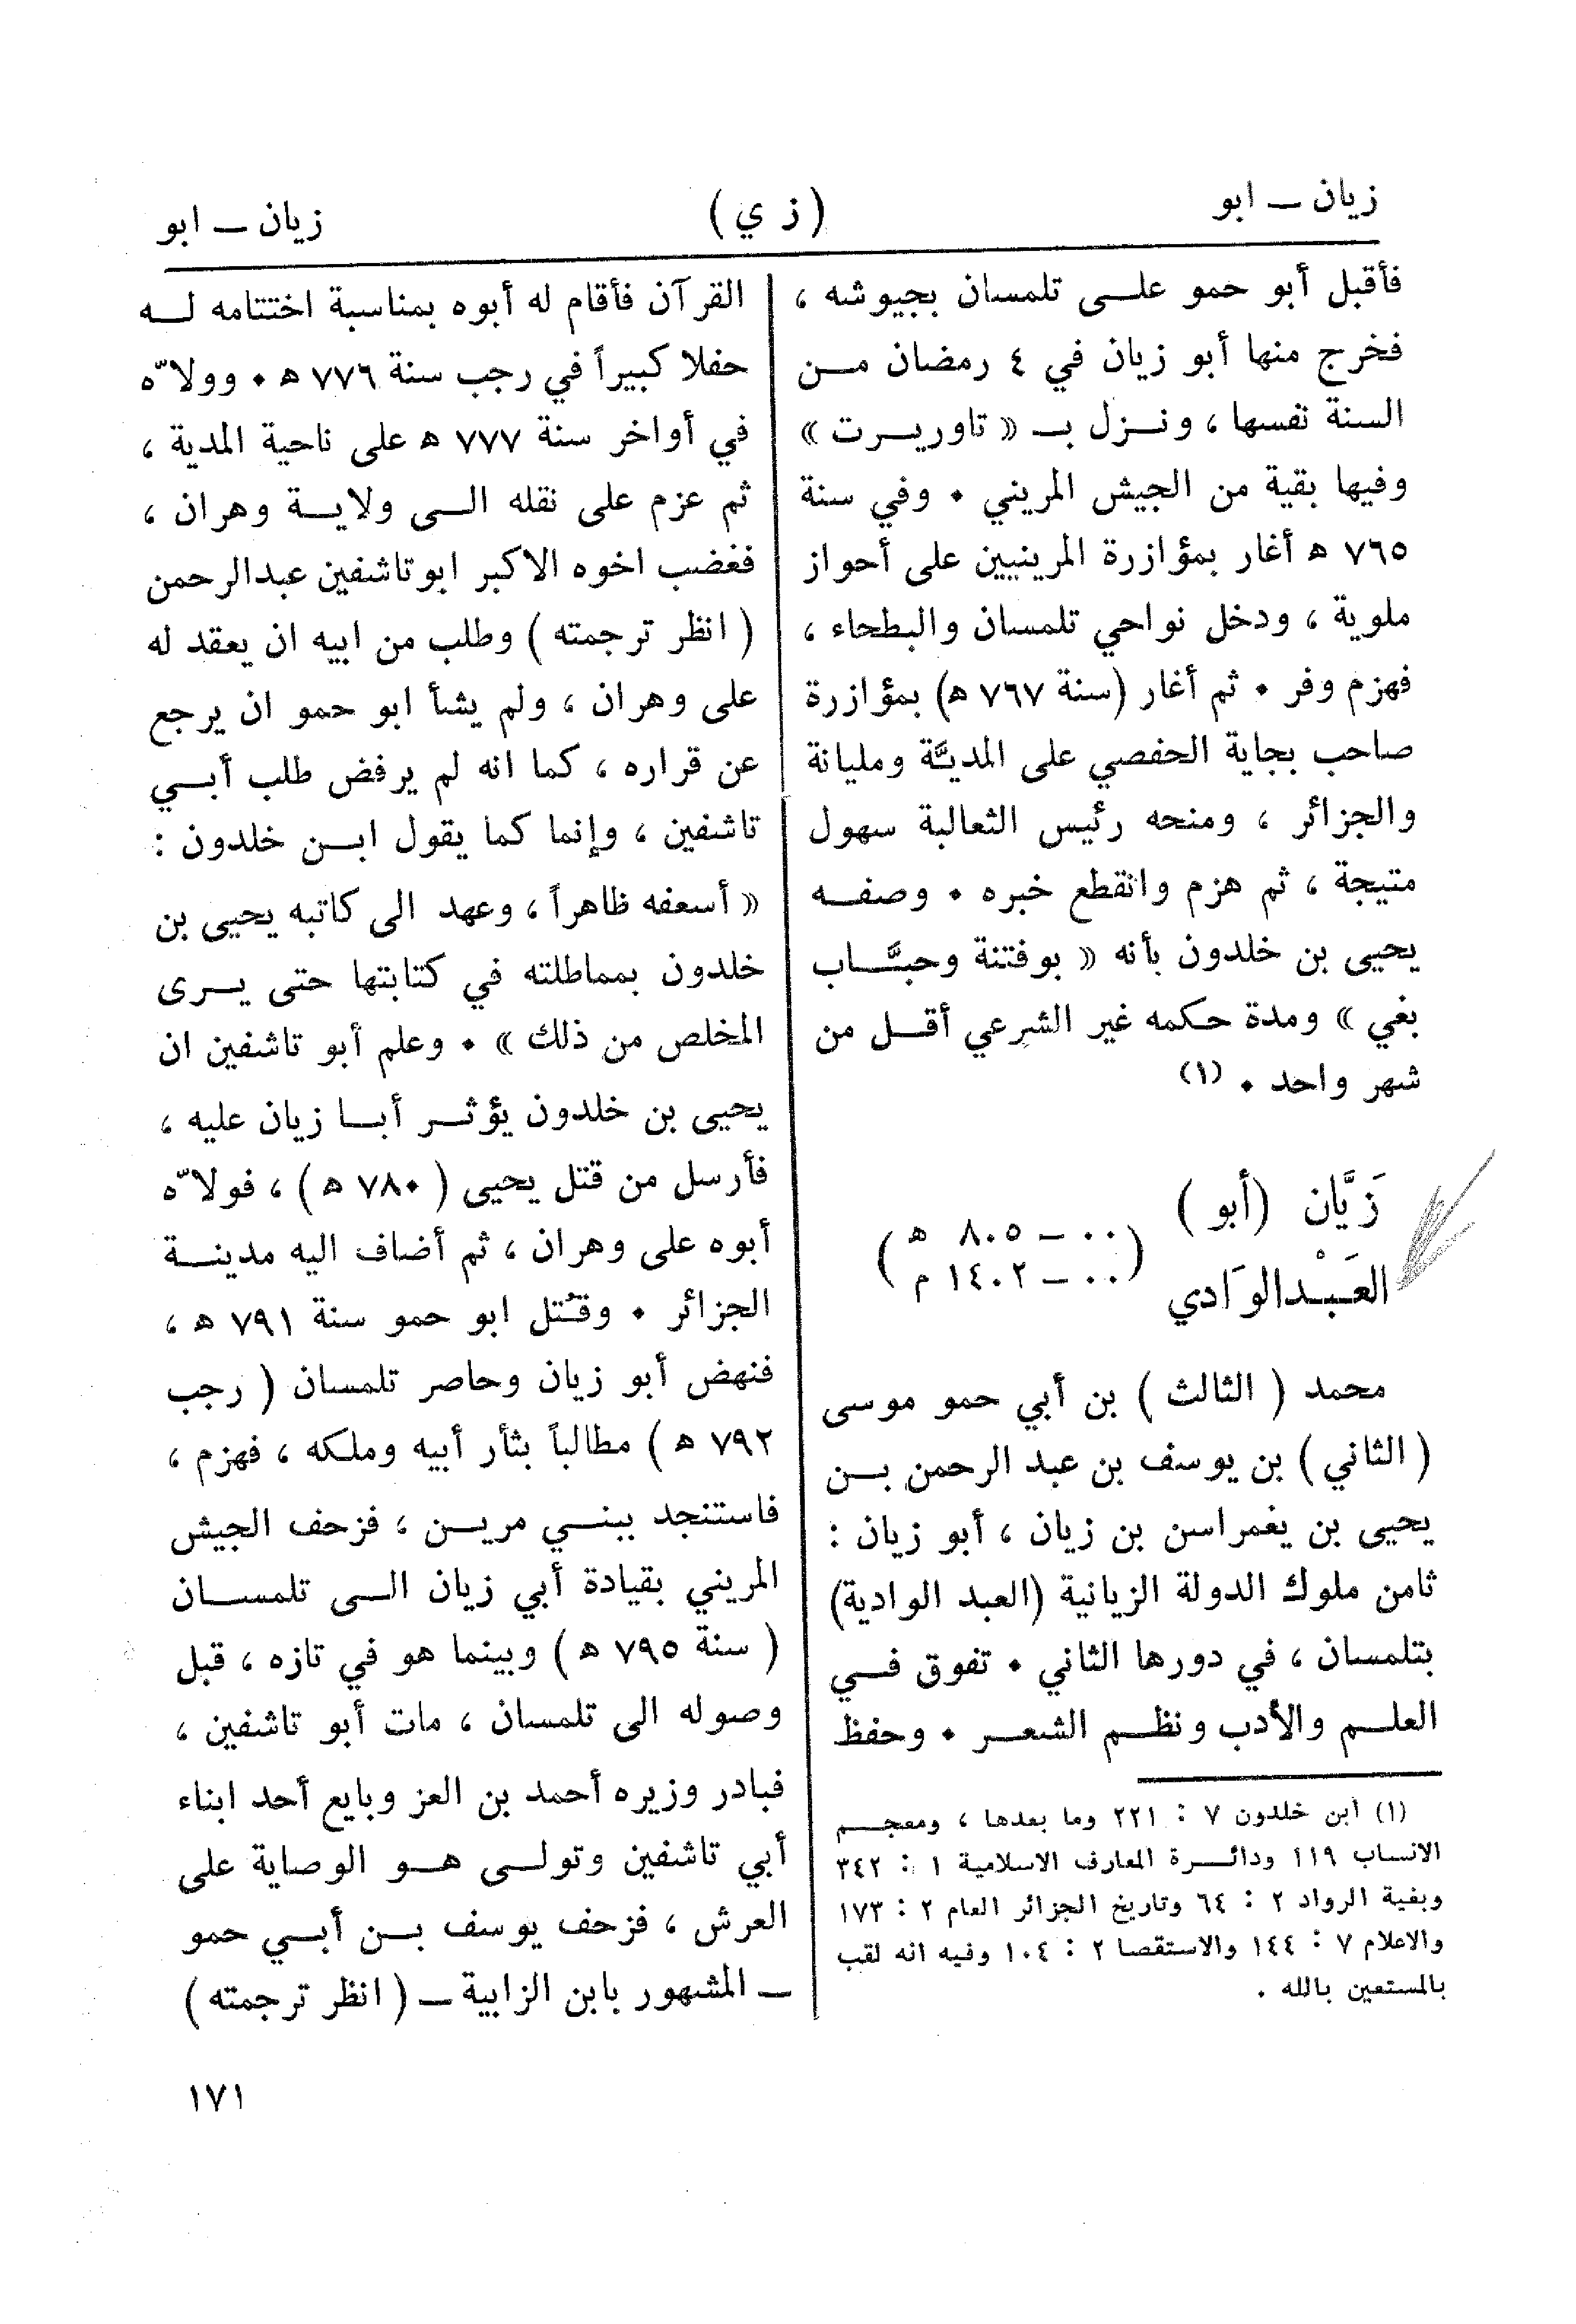 زيان ــ ابو
( ز ي )
زيان ــ ابو
فأقبل أبو حمو علــى تلمسان بجيوشه ،
فخرج منها أبو زيان في ٤ رمضان مــن
السنة نفسها ، ونــزل بــ « تاوريــرت »
وفيها بقية من الجيش المريني ٠ وفي سنة
٧٦٥ هـ أغار بمؤازرة المرينيين على أحواز
ملوية ، ودخل نواحي تلمسان والبطحاء ،
فهزم وفر ٠ ثم أغار (سنة ٧٦٧ هـ) بمؤازرة
صاحب بجاية الحفصي على المديَّة ومليانة
والجزائر ، ومنحه رئيس الثعالبة سهول
متيجة ، ثم هزم وانقطع خبره ٠ وصفــه
يحيى بن خلدون بأنه « بوفتنة وحبَّــاب
بغي » ومدة حكمه غير الشرعي أقــل من
شهر واحد ٠ (١)
زَيَّان (أبو )
(٠٠ ــ ٨٠٥ هـ
٠٠ ــ ١٤٠٢ م)
العَبْــدالوَادي
محمد ( الثالث ) بن أبي حمو موسى
( الثاني ) بن يوسف بن عبد الرحمن بــن
يحيى بن يغمراسن بن زيان ، أبو زيان :
ثامن ملوك الدولة الزيانية (العبد الوادية)
بتلمسان ، في دورها الثاني ٠ تفوق فــي
العلــم والأدب ونظــم الشعــر ٠ وحفظ
(١) أبن خلدون ٧ : ٢٢١ وما بعدها ، ومعجــم
الانساب ١١٩ ودائــرة المعارف الاسلامية ١ : ٣٤٢
وبغية الرواد ٢ : ٦٤ وتاريخ الجزائر العام ٢ : ١٧٣
والاعلام ٧ : ١٤٤ والاستقصا ٢ : ١٠٤ وفيه انه لقب
بالمستعين بالله .
القرآن فأقام له أبوه بمناسبة اختتامه لــه
حفلا كبيراً في رجب سنة ٧٧٦ هـ ٠ وولاّه
في أواخر سنة ٧٧٧ هـ على ناحية المدية ،
ثم عزم على نقله الــى ولايــة وهران ،
فغضب اخوه الاكبر ابو تاشفين عبدالرحمن
( انظر ترجمته ) وطلب من ابيه ان يعقد له
على وهران ، ولم يشأ ابو حمو ان يرجع
عن قراره ، كما انه لم يرفض طلب أبــي
تاشفين ، وإنما كما يقول ابــن خلدون :
« أسعفه ظاهراً ، وعهد الى كاتبه يحيى بن
خلدون بمماطلته في كتابتها حتى يــرى
المخلص من ذلك » ٠ وعلم أبو تاشفين ان
يحيى بن خلدون يؤثــر أبــا زيان عليه ،
فأرسل من قتل يحيى ( ٧٨٠ هـ ) ، فولاّه
أبوه على وهران ، ثم أضاف اليه مدينــة
الجزائر ٠ وقُتل ابو حمو سنة ٧٩١ هـ ،
فنهض أبو زيان وحاصر تلمسان ( رجب
٧٩٢ هـ ) مطالباً بثأر أبيه وملكه ، فهزم ،
فاستنجد ببنــي مريــن ، فزحف الجيش
المريني بقيادة أبي زيان الــى تلمســان
( سنة ٧٩٥ هـ ) وبينما هو في تازه ، قبل
وصوله الى تلمسان ، مات أبو تاشفين ،
فبادر وزيره أحمد بن العز وبايع أحد ابناء
أبي تاشفين وتولــى هــو الوصاية على
العرش ، فزحف يوسف بــن أبــي حمو
ــ المشهور بابن الزابية ــ ( انظر ترجمته )
١٧١